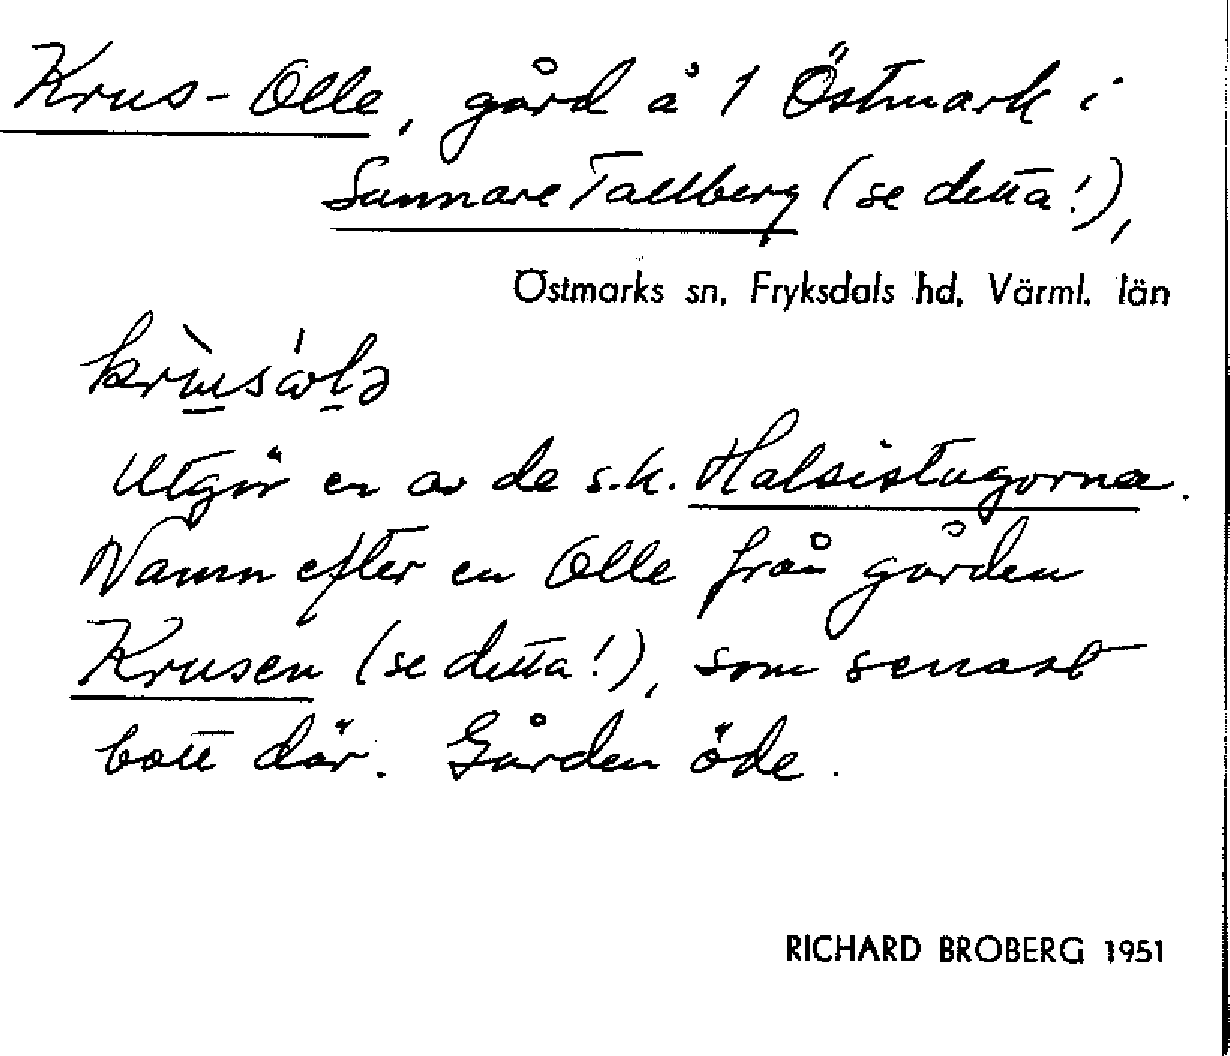 Krus-Olle, gård å 1 Östmark i
Sunnare Tallberg (se detta!),
Östmarks sn, Fryksdals hd, Värml. län
Utgör en av de s.k. Halsistugorna.
Namn efter en Olle från gården
Krusen (se detta!), som senast
bott där. Gården öde.
RICHARD BROBERG 1951